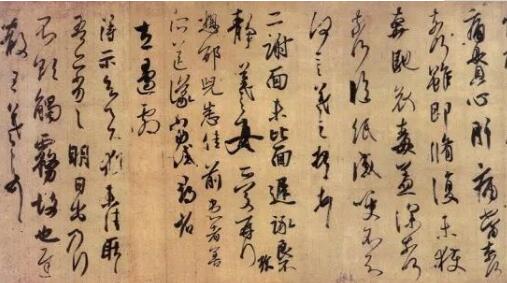 痛貫心肝痛當奈何
奈何雖即脩復未獲
奔馳哀毒益深奈何
奈何臨紙感哽不知
何言羲之頓首
二謝面未比面遲詠良不
靜羲之女愛再拜
想邵兒悉佳前患者善
所送議當
左邊劇
得示知足下猶未佳耿
吾亦劣劣明日出乃行
不欲觸霧故也遲
散王羲之頓首